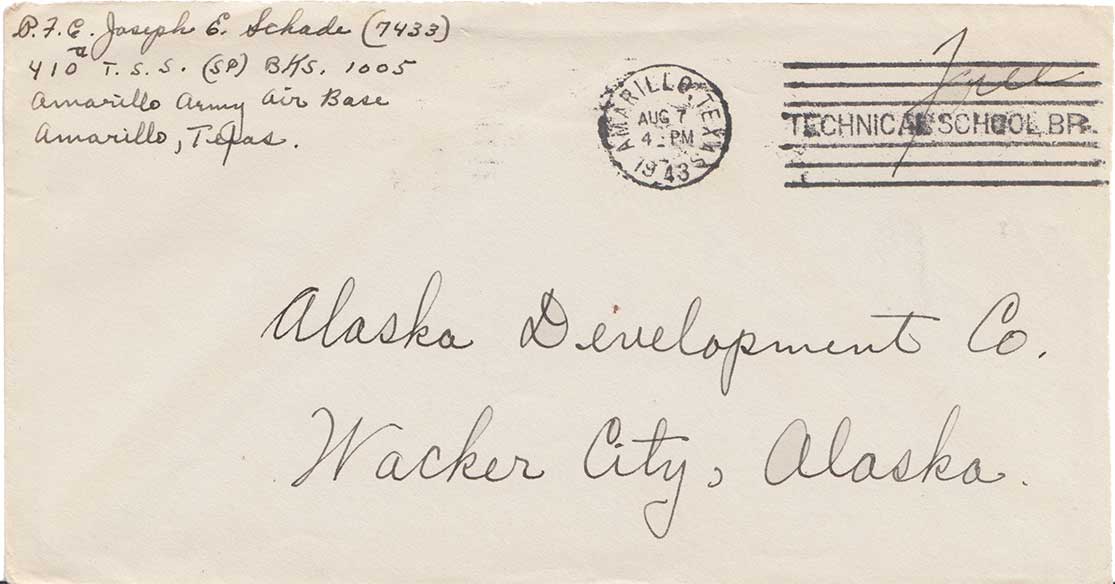 P.F.C. Joseph E. Schade (7433)
410 T.S.S. (SP) BKS. 1005
Amarillo Army Air Base
Amarillo, Texas.
AMARILLO, TEXAS
AUG 7
4 - PM
1943
Free
TECHNICAL SCHOOL BR.
Alaska Development Co.
Wacker City, Alaska.